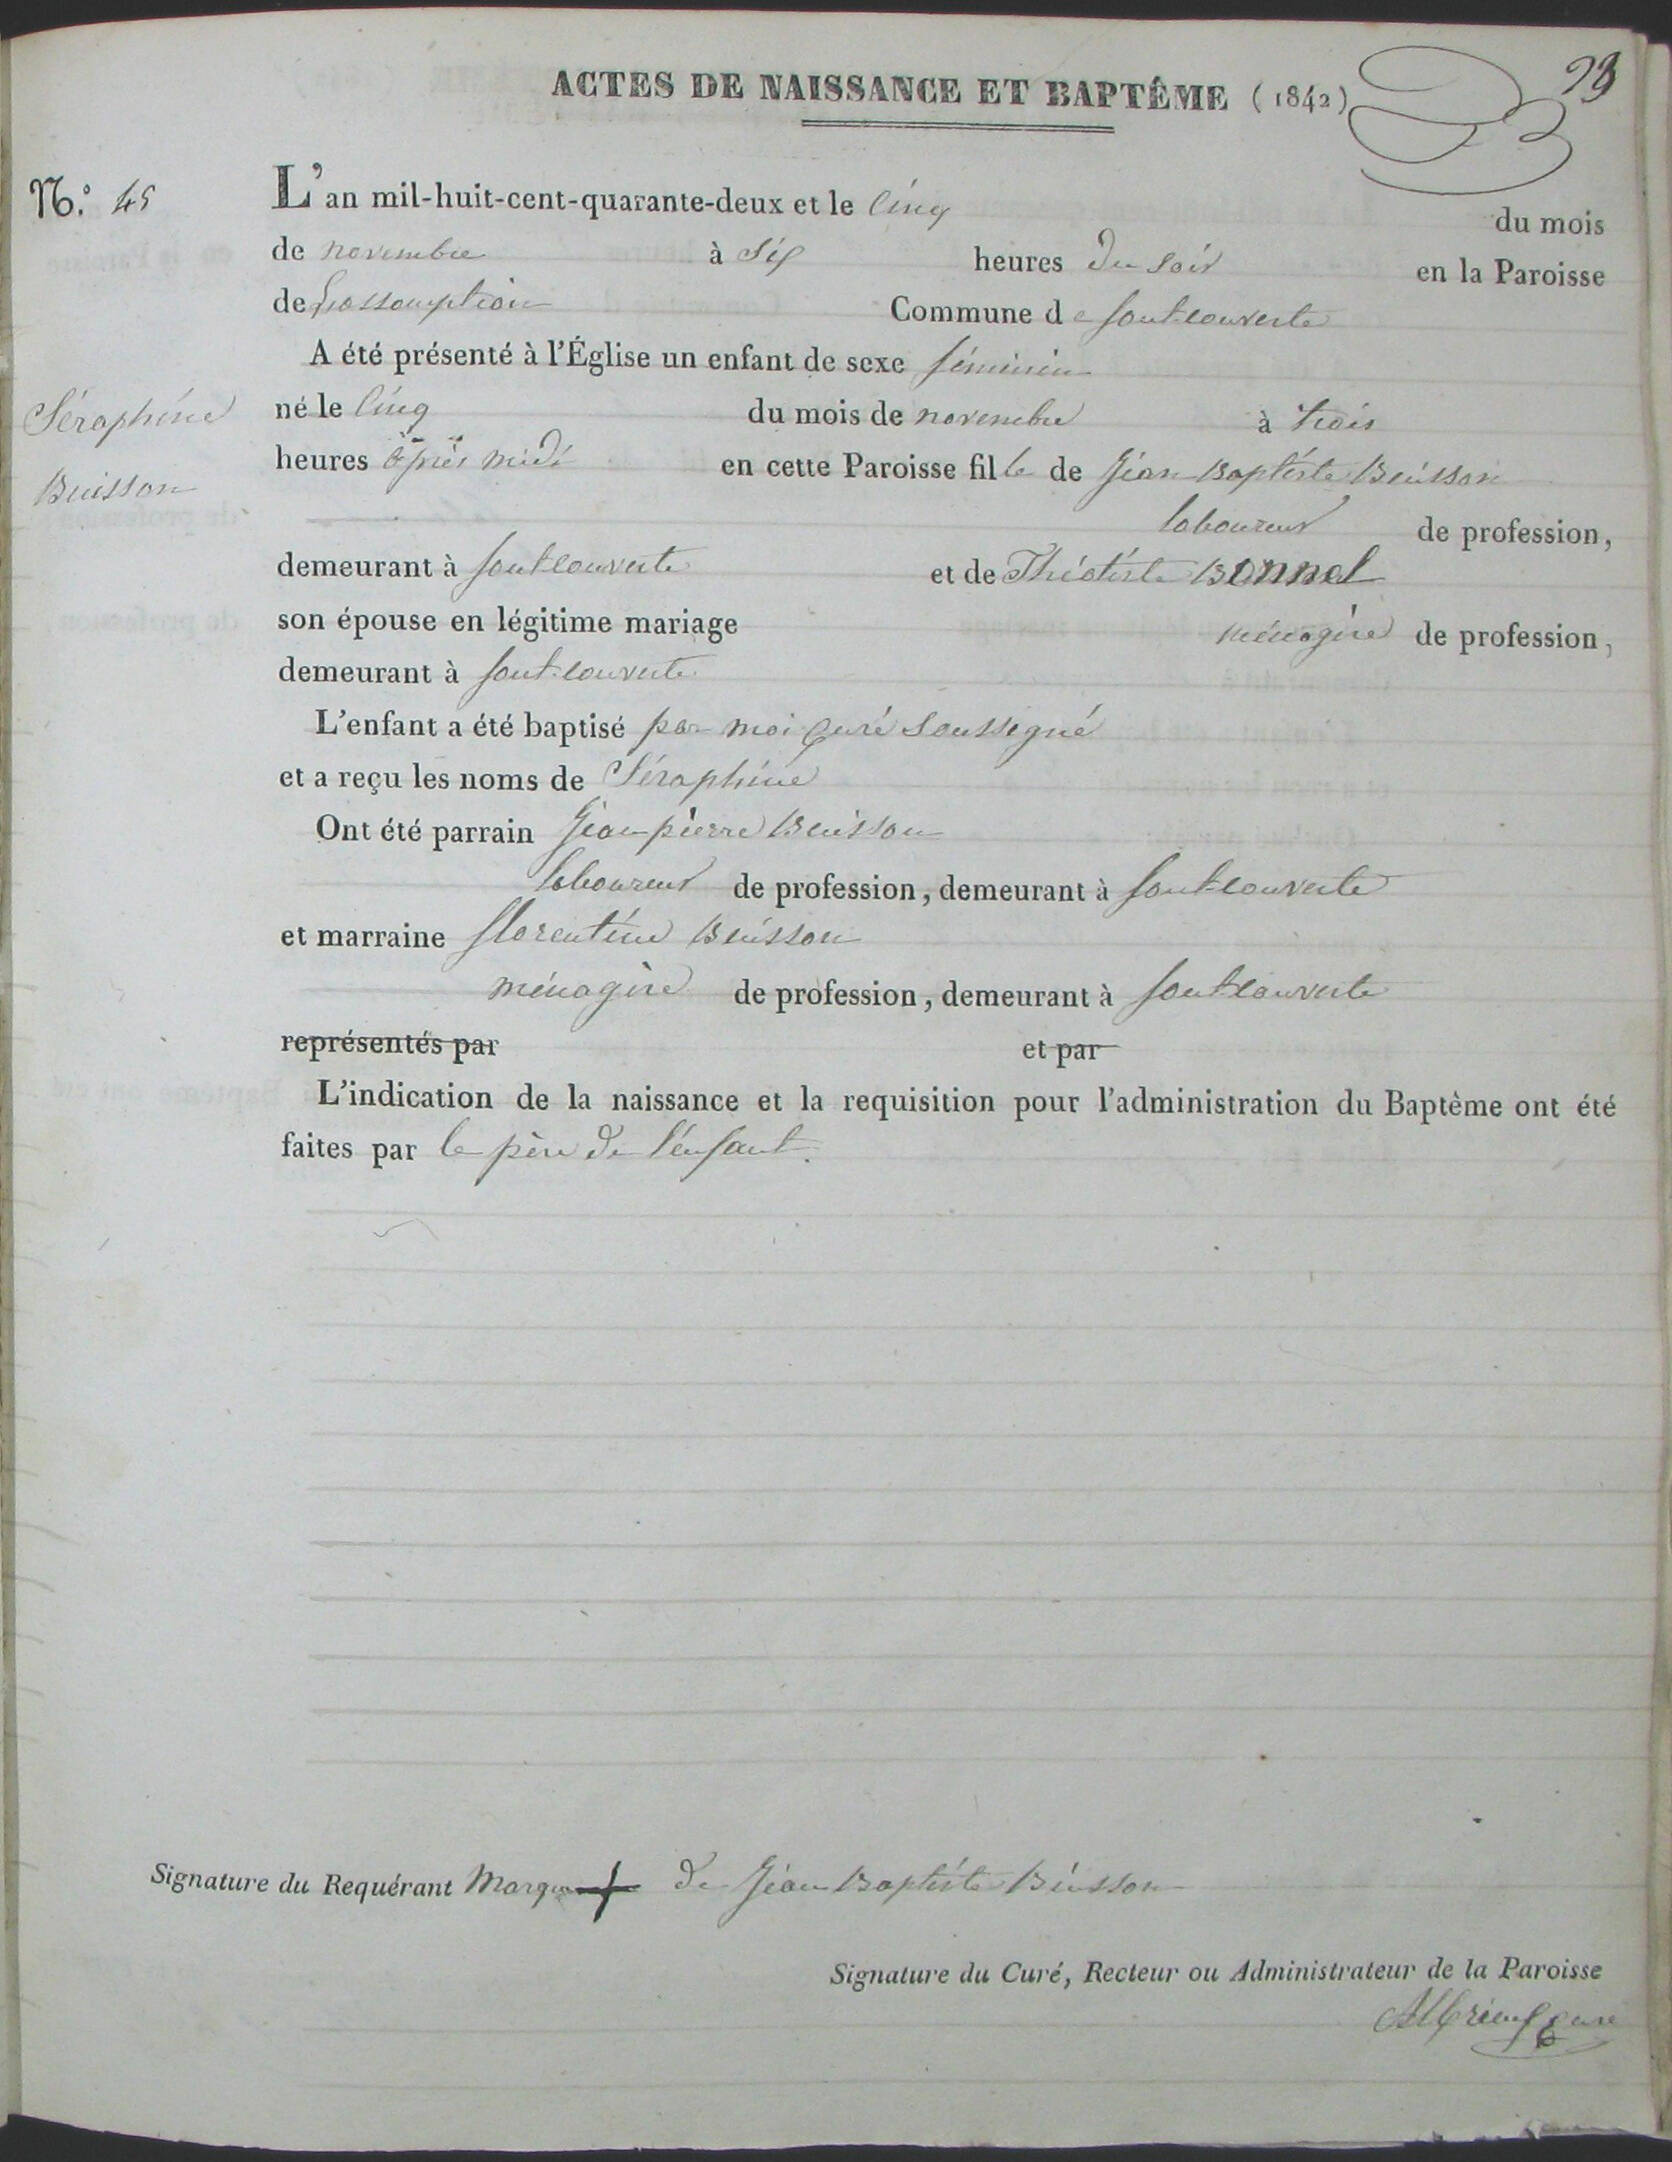 ACTES DE NAISSANCE ET BAPTÊME (1842)
93
N.° 45
L'an mil-huit-cent-quarante-deux et le cinq du mois
de novembre à six heures du soir en la Paroisse
de l'assomption Commune de fontcouverte
A été présenté à l'Église un enfant de sexe féminin
Séraphine
Buisson
né le cinq du mois de novembre à trois
heures après midi en cette Paroisse fille de Jean Baptiste Buisson
laboureur de profession,
demeurant à fontcouverte et de Théotiste Bonnel
son épouse en légitime mariage ménagère de profession,
demeurant à fontcouverte
L'enfant a été baptisé par moi curé soussigné
et a reçu les noms de Séraphine
Ont été parrain Jean pierre Buisson
laboureur de profession, demeurant à fontcouverte
et marraine florentine Buisson
ménagère de profession, demeurant à fontcouverte
représentés par et par
L'indication de la naissance et la requisition pour l'administration du Baptême ont été
faites par le père de l'enfant.
Signature du Requérant Marque + de Jean Baptiste Buisson
Signature du Curé, Recteur ou Administrateur de la Paroisse
curé